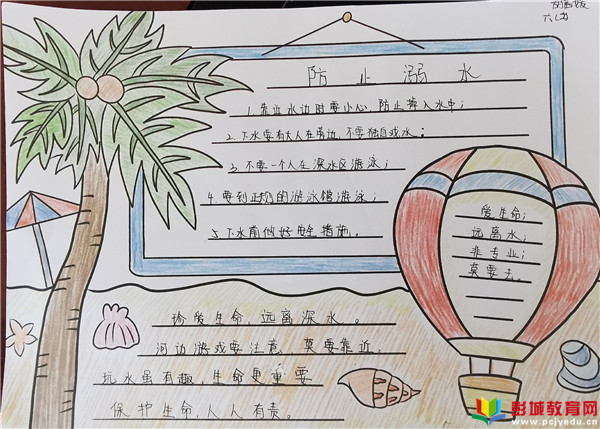 六(4)
防止溺水
1.靠近水边时要小心,防止掉入水中;
2.下水要有大人在旁边,不要独自戏水;
3.不要一个人在深水区游泳;
4.要到正规的游泳馆游泳;
5.下水前做好安全措施。
爱生命;
远离水;
非专业;
莫要去。
珍爱生命,远离深水。
河边游戏要注意,莫要靠近,
玩水虽有趣,生命更重要
保护生命,人人有责。
彭城教育网
www.pcjyedu.cn